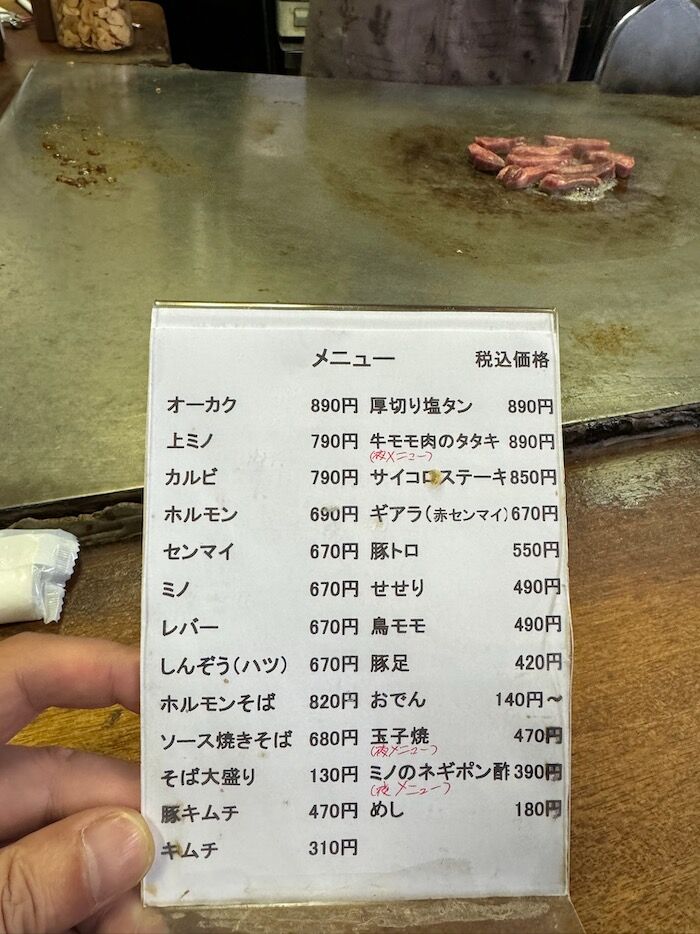 メニュー 税込価格
オーカク 890円 厚切り塩タン 890円
上ミノ 790円 牛モモ肉のタタキ 890円
(夜メニュー)
カルビ 790円 サイコロステーキ 850円
ホルモン 690円 ギアラ(赤センマイ) 670円
センマイ 670円 豚トロ 550円
ミノ 670円 せせり 490円
レバー 670円 鳥モモ 490円
しんぞう(ハツ) 670円 豚足 420円
ホルモンそば 820円 おでん 140円~
ソース焼きそば 680円 玉子焼 470円
(夜メニュー)
そば大盛り 130円 ミノのネギポン酢 390円
(夜メニュー)
豚キムチ 470円 めし 180円
キムチ 310円